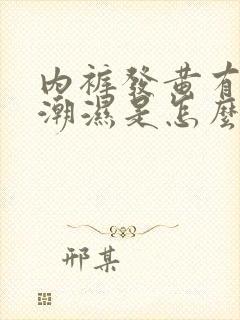 內褲發黃有
潮濕是怎麼
邢某